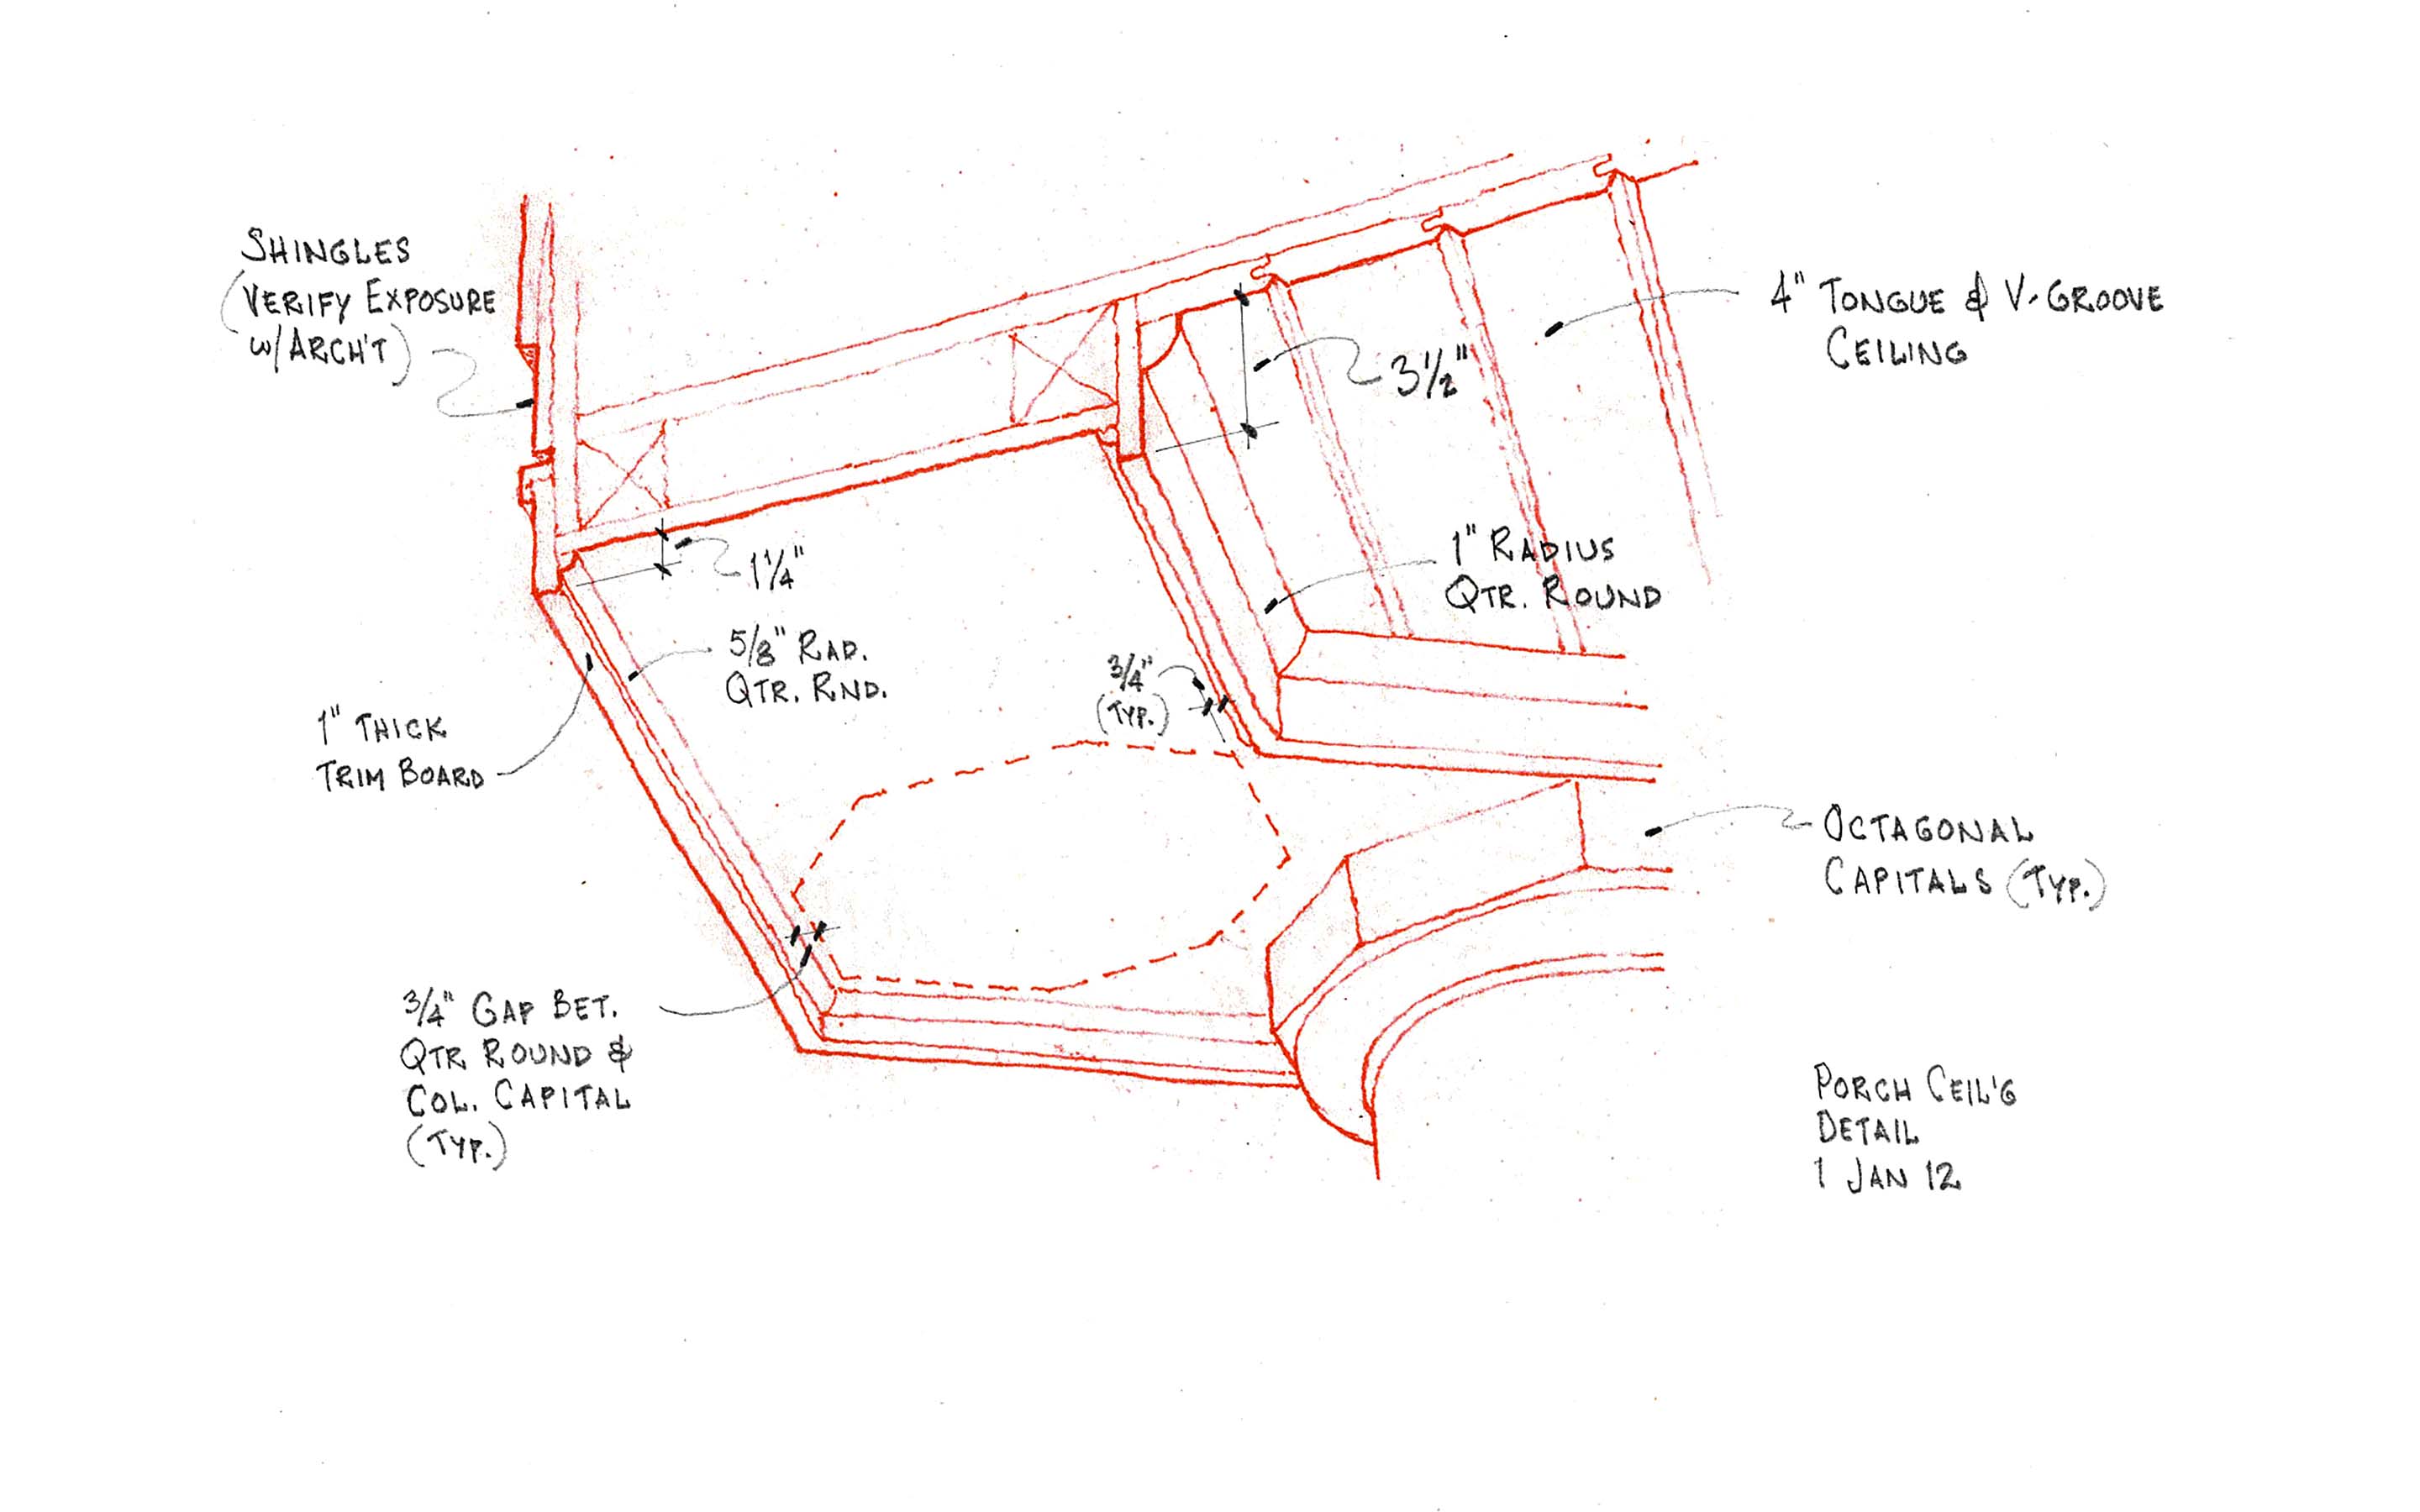 SHINGLES
(VERIFY EXPOSURE
W/ARCH'T)
4" TONGUE & V-GROOVE
CEILING
3½"
1" RADIUS
QTR. ROUND
1¼"
5/8" RAD.
QTR. RND.
3/4"
(TYP.)
1" THICK
TRIM BOARD
OCTAGONAL
CAPITALS (TYP.)
3/4" GAP BET.
QTR ROUND &
COL. CAPITAL
(TYP.)
PORCH CEIL'G
DETAIL
1 JAN 12